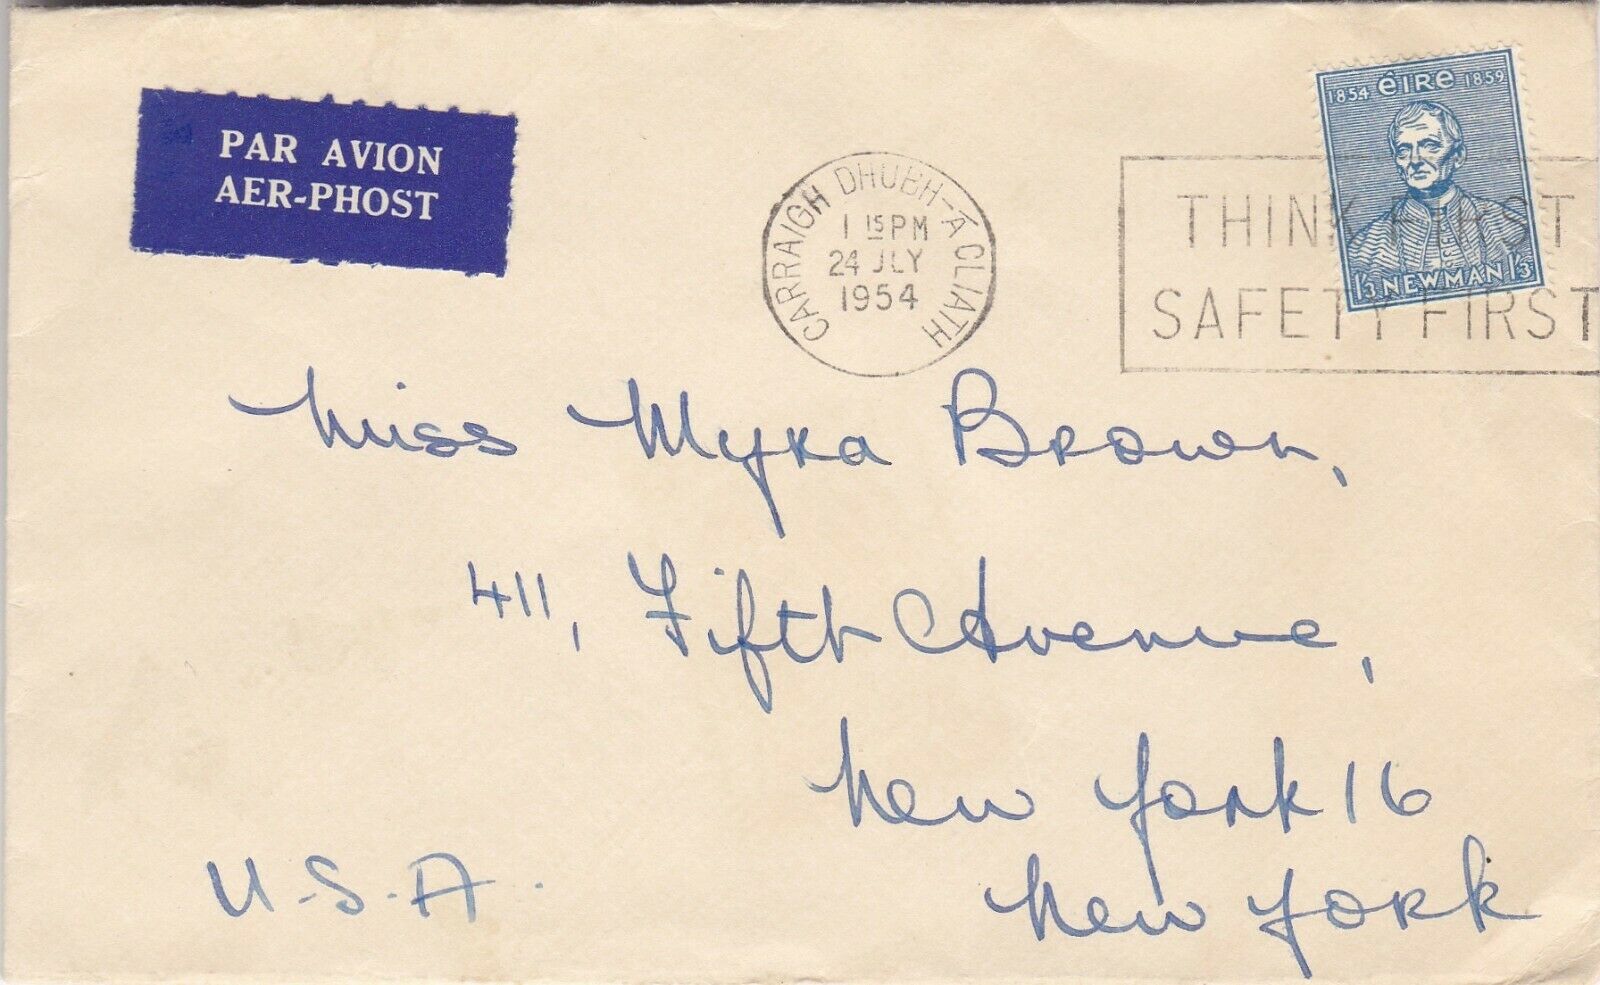 PAR AVION
AER-PHOST
CARRAIGH DHUBH-Á CLIATH
1 15 PM
24 JLY
1954
1854 éIRe 1859
1/3 NEWMAN 1/3
THINK FIRST
SAFETY FIRST
Miss Myra Brown,
411, Fifth Avenue,
New York 16
New York
U.S.A.